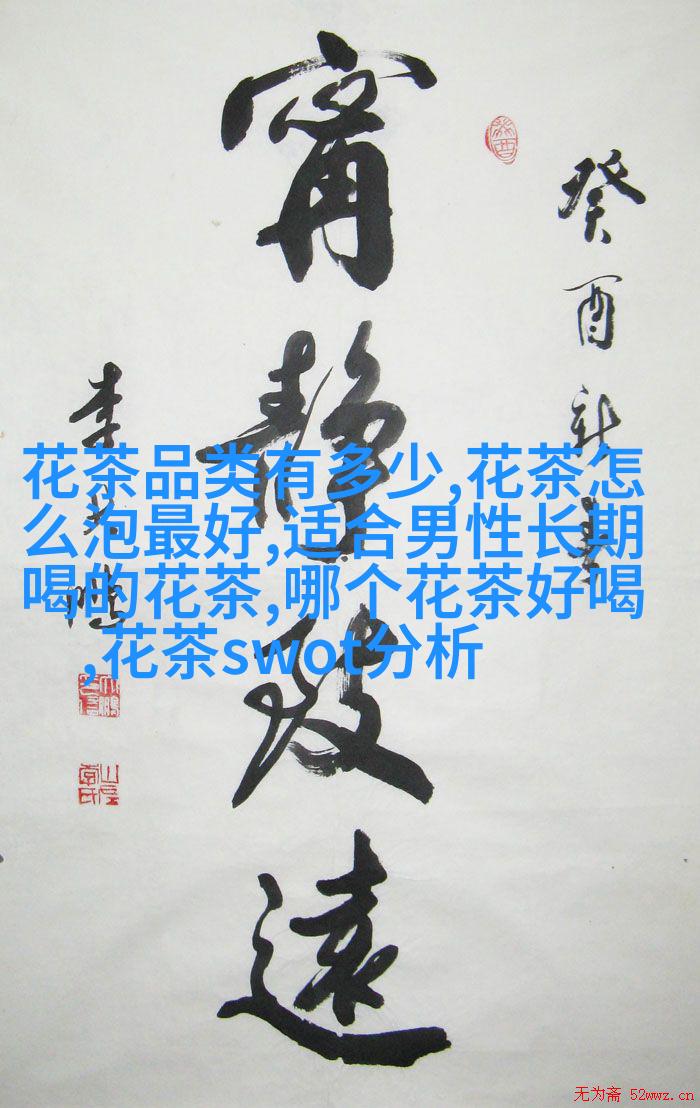 甯靜致遠
癸酉新春
花茶品类有多少,花茶怎
么泡最好,适合男性长期
喝的花茶,哪个花茶好喝
,花茶swot分析
无为斋 52wwz.cn